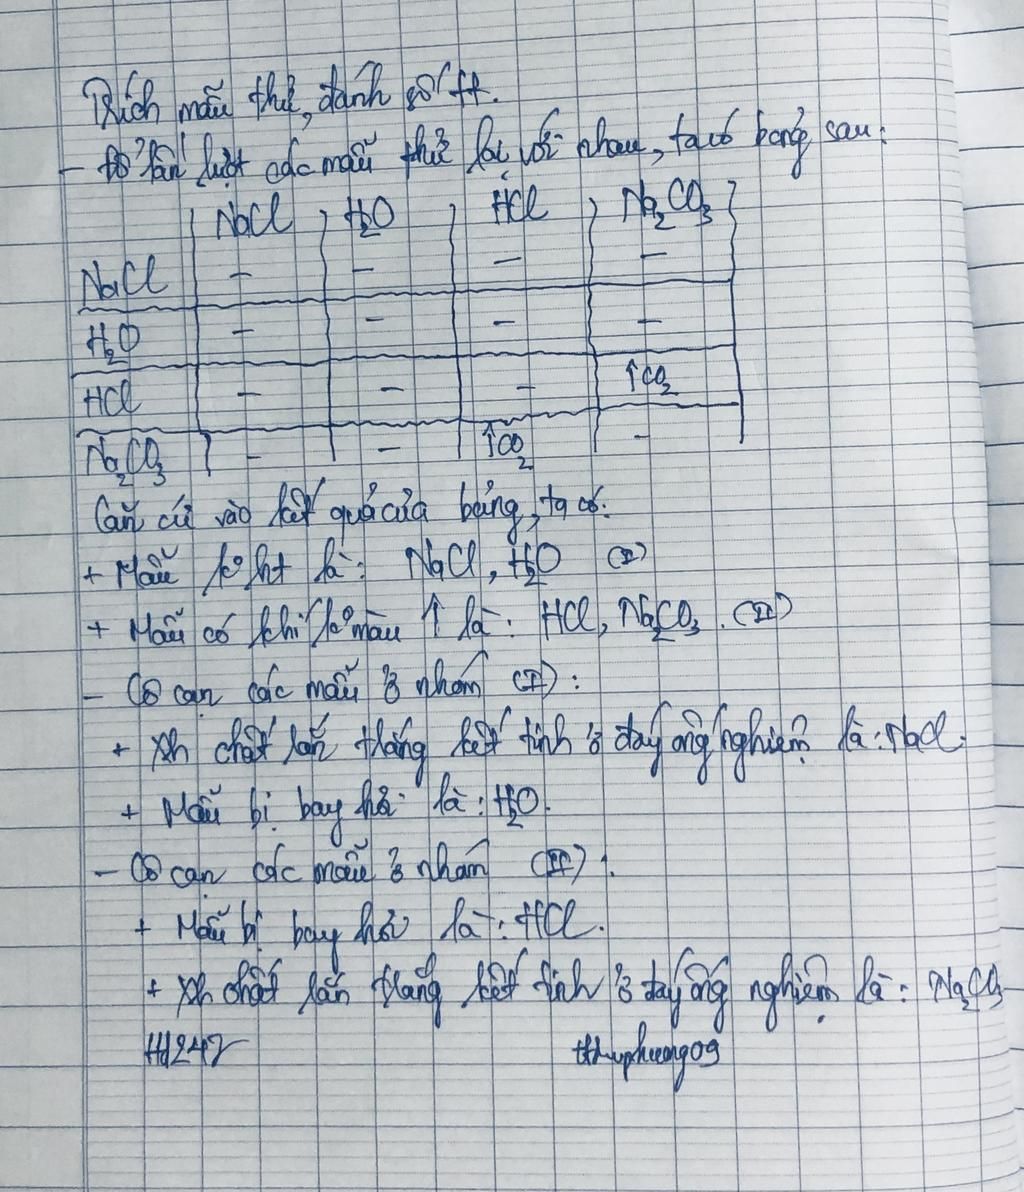 Trích mẫu thử, đánh số tt.
- Đổ lần lượt các mẫu thử lại với nhau, ta có bảng sau:
NaCl H₂O HCl Na₂CO₃
NaCl - - - -
H₂O - - - -
HCl - - - ↑CO₂
Na₂CO₃ - - ↑CO₂ -
Căn cứ vào kết quả của bảng, ta có:
+ Mẫu ko ht là: NaCl, H₂O (I)
+ Mẫu có khí ko màu ↑ là: HCl, Na₂CO₃. (II)
- Cô cạn các mẫu ở nhóm (I):
+ Xh chất rắn trắng kết tinh ở đáy ống nghiệm là: NaCl.
+ Mẫu bị bay hơi là: H₂O.
- Cô cạn các mẫu ở nhóm (II):
+ Mẫu bị bay hơi là: HCl.
+ Xh chất rắn trắng kết tinh ở đáy ống nghiệm là: Na₂CO₃
Hd247 tthuphuong09